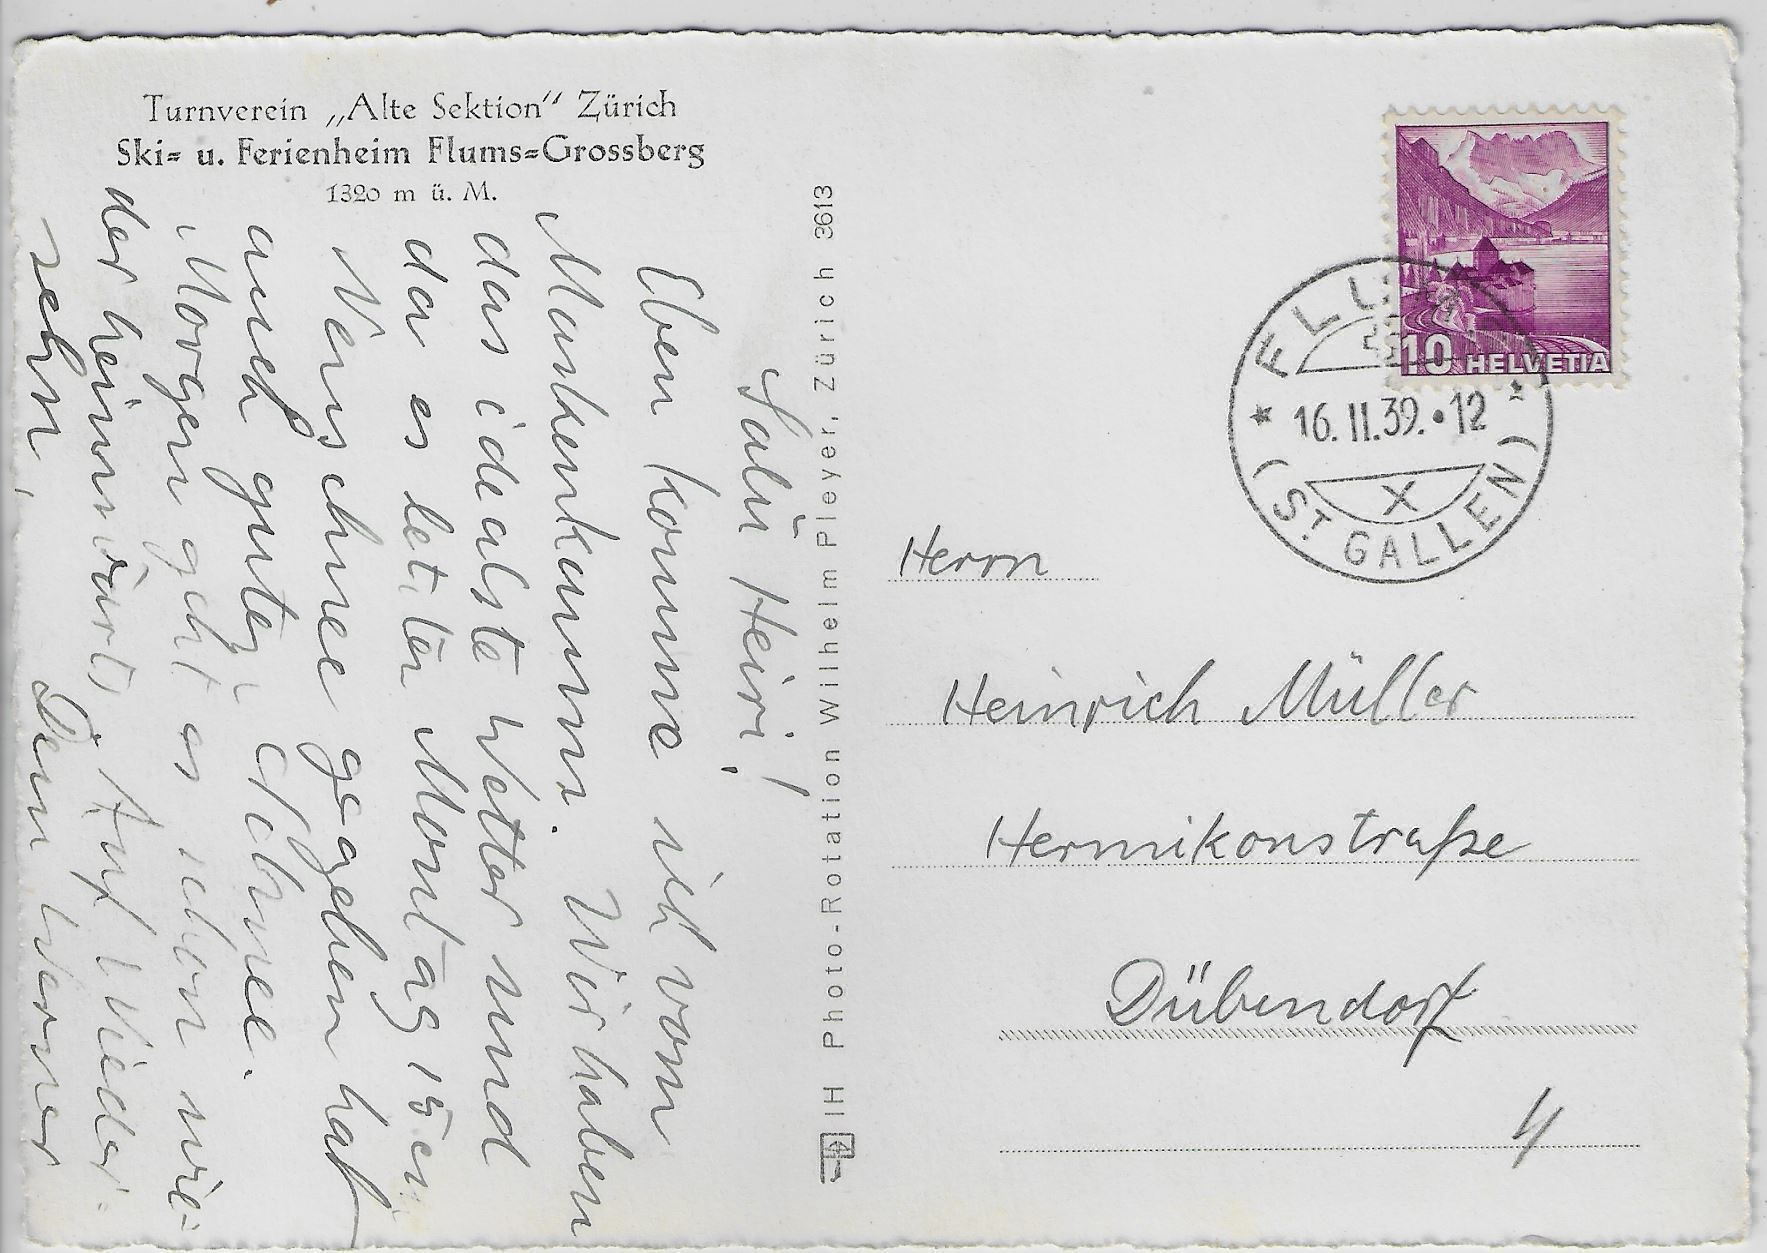 Turnverein „Alte Sektion“ Zürich
Ski= u. Ferienheim Flums=Grossberg
1320 m ü. M.
Salü Heiri!
Eben komme ich vom
Maskenkamm. Wir haben
das idealste Wetter und
da es letzten Montag 15 cm
Neuschnee gegeben hat
auch guten Schnee.
Morgen geht es schon wie-
der heimwärts. Auf Wieder-
sehn,
Dein Werner
IH Photo-Rotation Wilhelm Pleyer, Zürich 3613
10 HELVETIA
FLUMS
16.II.39.•12
X
(ST GALLEN)
Herrn
Heinrich Müller
Hermikonstraße
Dübendorf